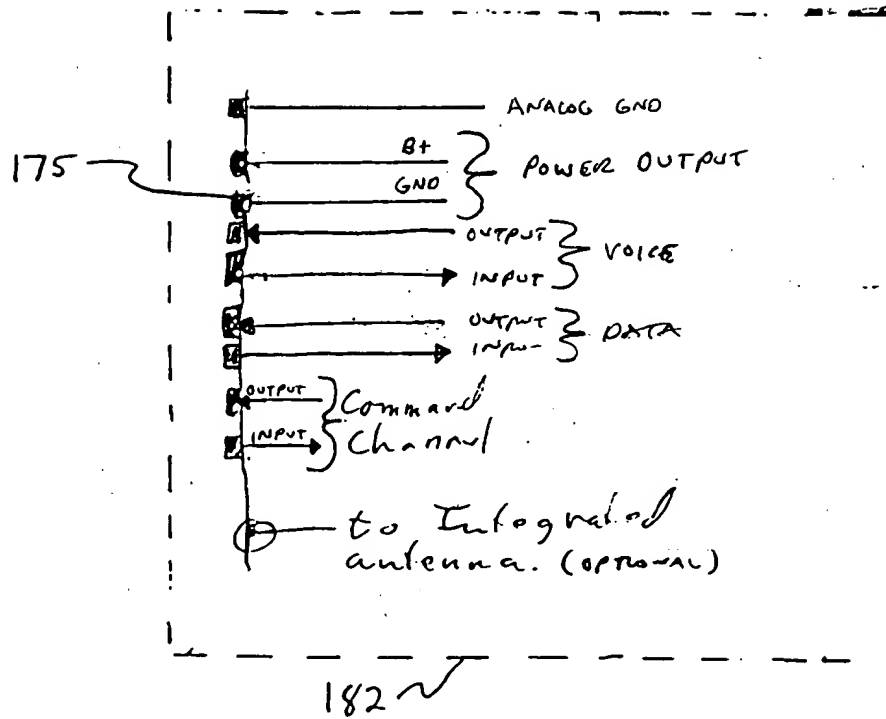 ANALOG GND
175
B+
GND
POWER OUTPUT
OUTPUT
INPUT
VOICE
OUTPUT
INPU-
DATA
OUTPUT
INPUT
Command
Channel
to Integrated
antenna. (OPTIONAL)
182